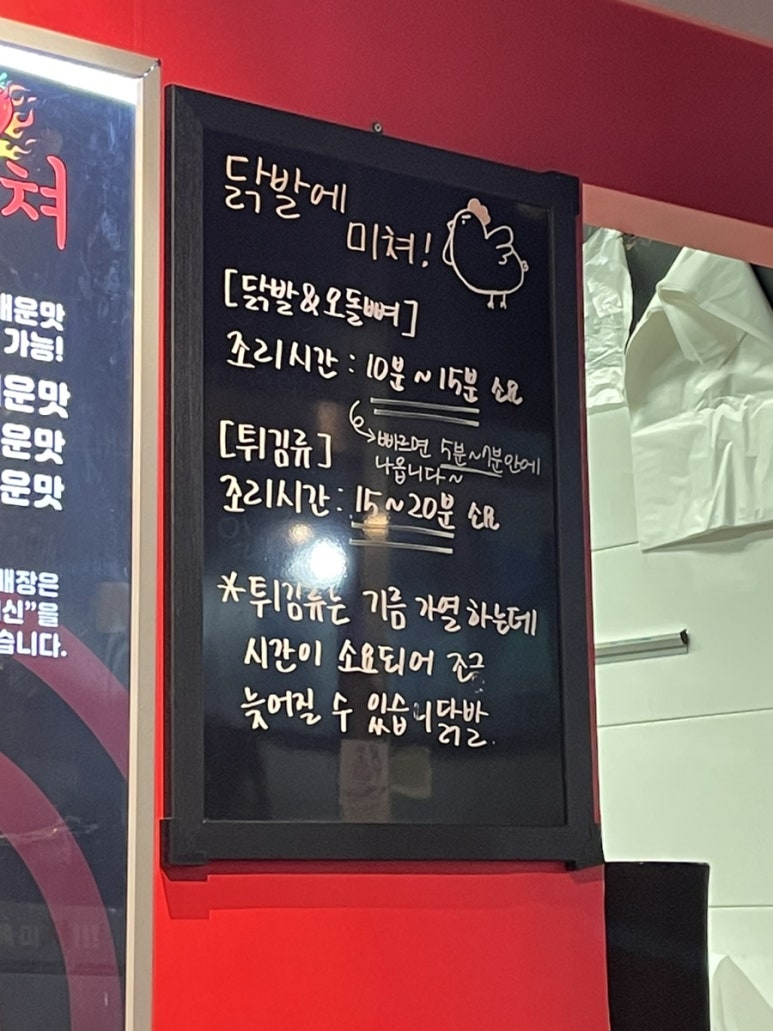 쳐
매운맛
가능!
운맛
운맛
운맛
매장은
신”을
습니다.
닭발에
미쳐!
[닭발&오돌뼈]
조리시간 : 10분~15분 소요
빠르면 5분~7분안에
나옵니다~
[튀김류]
조리시간 : 15~20분 소요
*튀김류는 기름 가열하는데
시간이 소요되어 조금
늦어질 수 있습니닭발.